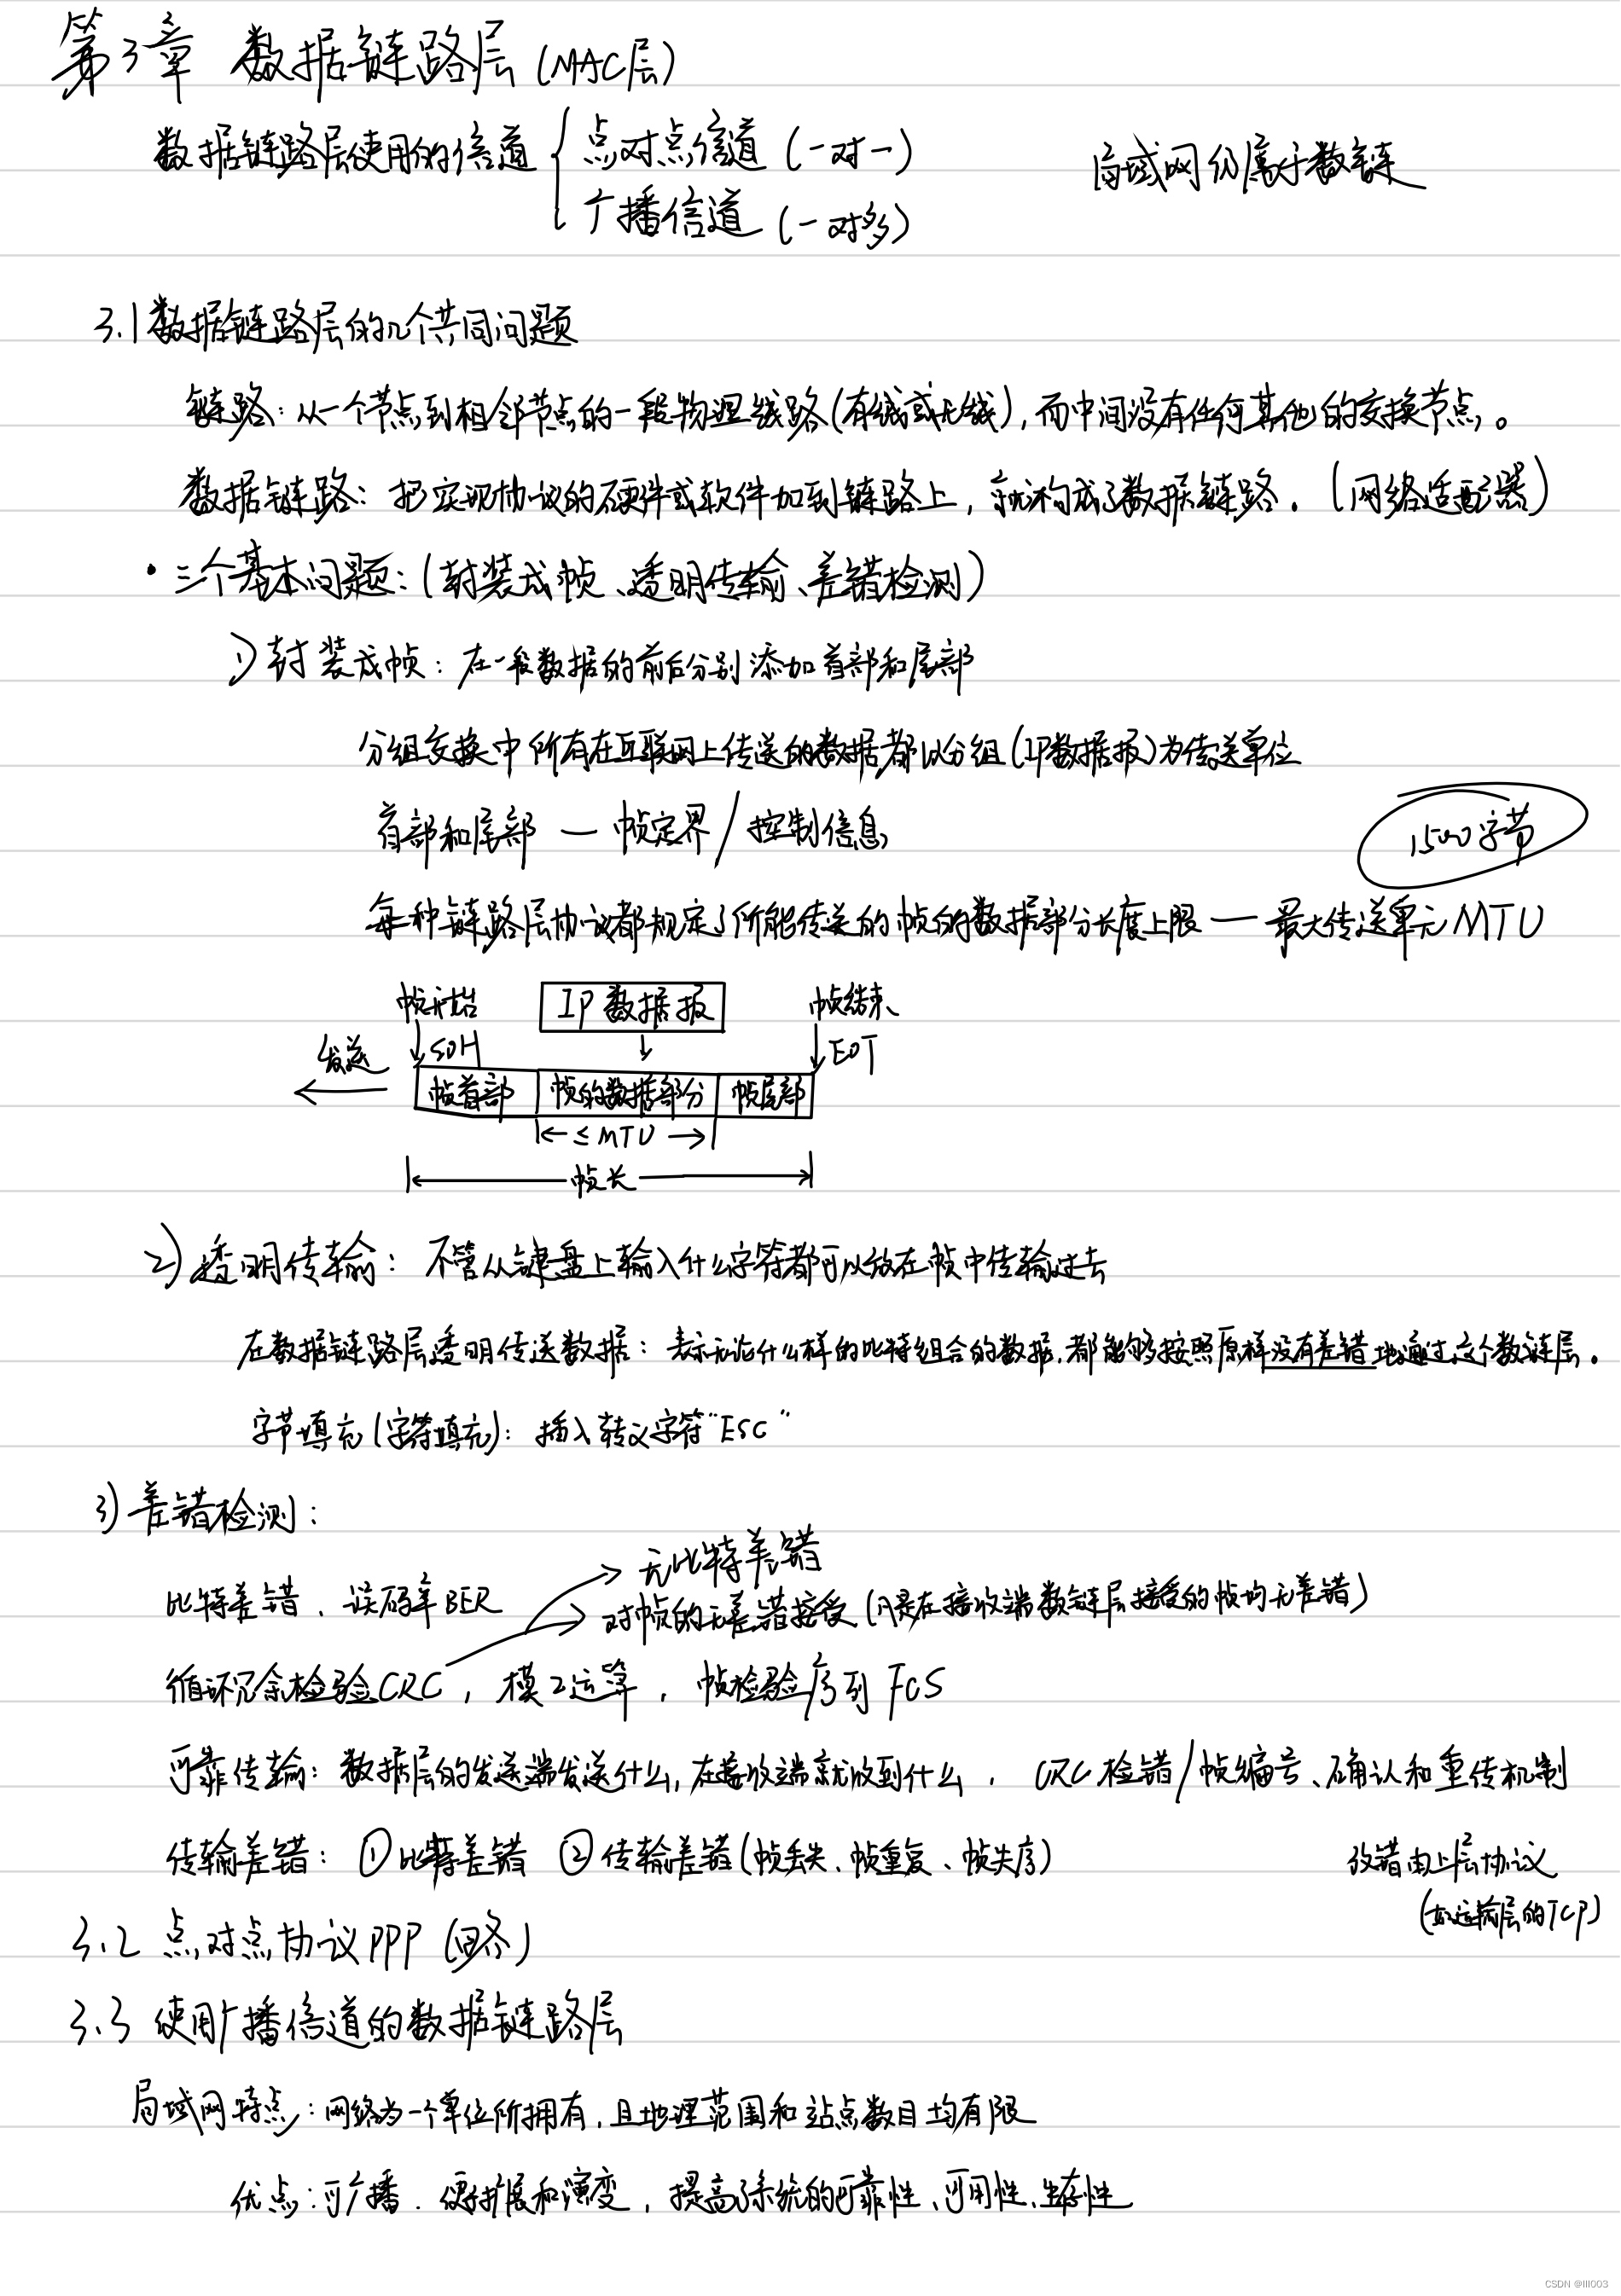 第3章 数据链路层(MAC层)
数据链路层使用的信道
点对点信道 (一对一)
广播信道 (一对多)
局域网仍属于数链
3.1 数据链路层的几个共同问题
链路: 从一个节点到相邻节点的一段物理线路(有线或无线), 而中间没有任何其他的交换节点。
数据链路: 把实现协议的硬件或软件加到链路上, 就构成了数据链路. (网络适配器)
· 三个基本问题: (封装成帧、透明传输、差错检测)
1) 封装成帧: 在一段数据的前后分别添加首部和尾部
分组交换中所有在互联网上传送的数据都以分组(IP数据报)为传送单位
首部和尾部 — 帧定界/控制信息
1500字节
每种链路层协议都规定了所能传送的帧的数据部分长度上限 — 最大传送单元MTU
帧开始 IP数据报 帧结束
发送 SOH EOT
帧首部 帧的数据部分 帧尾部
≤MTU
帧长
2) 透明传输: 不管从键盘上输入什么字符都可以放在帧中传输过去
在数据链路层透明传送数据: 表示无论什么样的比特组合的数据, 都能够按照原样没有差错地通过这个数链层.
字节填充(字符填充): 插入转义字符"ESC"
3) 差错检测:
无比特差错
比特差错、误码率BER
对帧的无差错接受 (凡是在接收端数链层接受的帧均无差错)
循环冗余检验CRC, 模2运算, 帧检验序列FCS
可靠传输: 数据层的发送端发送什么, 在接收端就收到什么, CRC检错/帧编号、确认和重传机制
传输差错: ①比特差错 ②传输差错(帧丢失、帧重复、帧失序)
改错由上层协议
(如运输层的TCP)
3.2 点对点协议PPP (略)
3.3 使用广播信道的数据链路层
局域网特点: 网络为一个单位所拥有, 且地理范围和站点数目均有限
优点: 可广播、便于扩展和演变, 提高了系统的可靠性、可用性、生存性
CSDN @lll003